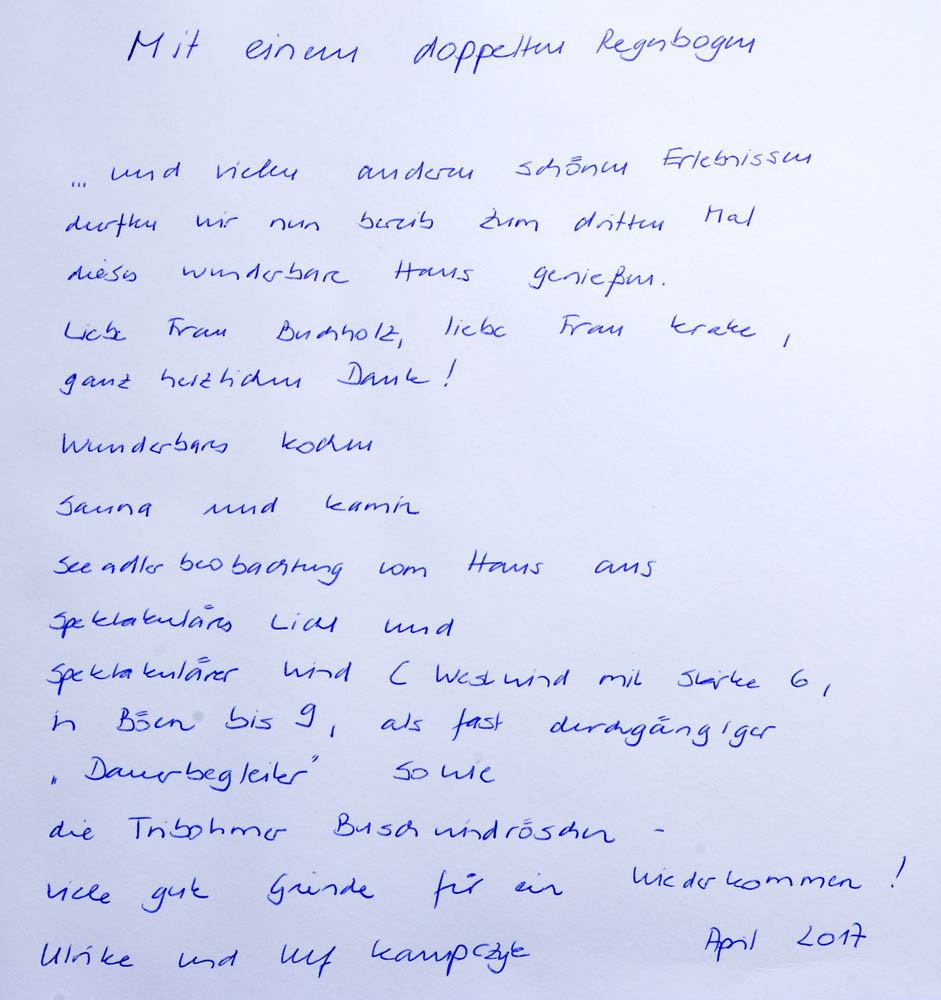 Mit einem doppelten Regenbogen
... und vielen anderen schönen Erlebnissen
durften wir nun bereits zum dritten Mal
dieses wunderbare Haus genießen.
Liebe Frau Buchholz, liebe Frau Krake,
ganz herzlichen Dank!
Wunderbares Kochen
Sauna und Kamin
Seeadlerbeobachtung vom Haus aus
Spektakuläres Licht und
Spektakulärer Wind (Westwind mit Stärke 6,
in Böen bis 9, als fast durchgängiger
„Dauerbegleiter" sowie
die Tribohmer Buschwindröschen -
viele gute Gründe für ein Wiederkommen!
Ulrike und Ulf Kampczyk April 2017